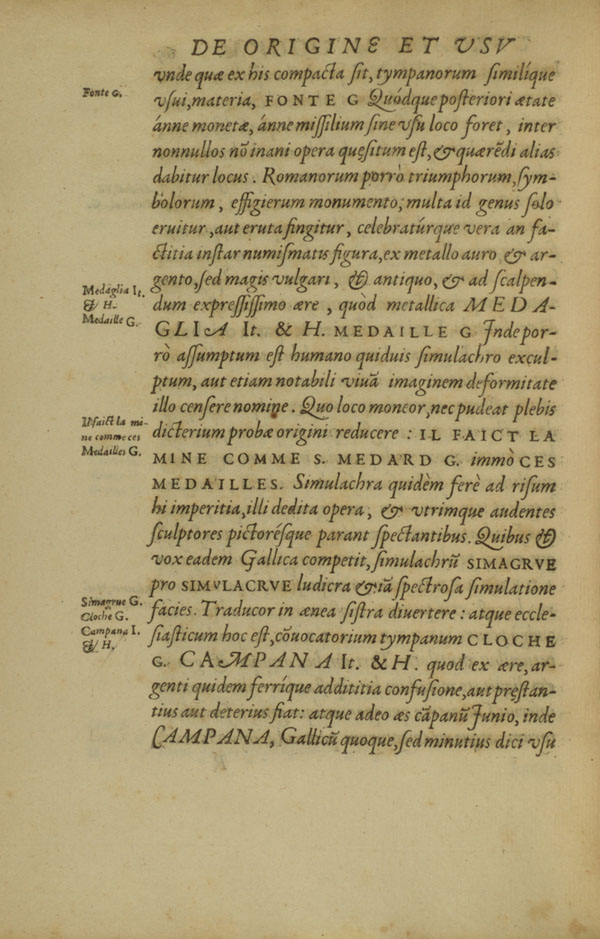 DE ORIGINE ET VSV
vnde quæ ex his compacta sit, tympanorum similíque
Fonte G.
vsui, materia, FONTE G Quódque posteriori ætate
ánne monetæ, ánne missilium sine vsu loco foret, inter
nonnullos nō inani opera quesitum est, & quærēdi alias
dabitur locus. Romanorum porrò triumphorum, sym-
bolorum, effigierum monumento, multa id genus solo
eruitur, aut eruta fingitur, celebratúrque vera an fa-
ctitia instar numismatis figura, ex metallo auro & ar-
gento, sed magis vulgari, & antiquo, & ad scalpen-
Medaglia It.
& H.
Medaille G.
dum expressissimo ære, quod metallica MEDA-
GLIA It. & H. MEDAILLE G Inde por-
rò assumptum est humano quiduis simulachro excul-
ptum, aut etiam notabili viuā imaginem deformitate
illo censere nomine. Quo loco moneor, nec pudeat plebis
Il faict la mi-
ne comme ces
Medailles G.
dicterium probæ origini reducere: IL FAICT LA
MINE COMME S. MEDARD G. immò CES
MEDAILLES. Simulachra quidèm ferè ad risum
hi imperitia, illi dedita opera, & vtrimque audentes
sculptores pictorésque parant spectantibus. Quibus &
vox eadem Gallica competit, simulachrū SIMAGRVE
pro SIMVLACRVE ludicra & iā spectrosa simulatione
Simagrue G.
Cloche G.
Campana I.
& H.
facies. Traducor in ænea sistra diuertere: atque eccle-
siasticum hoc est, cōuocatorium tympanum CLOCHE
G. CAMPANA It. & H. quod ex ære, ar-
genti quidem ferríque addititia confusione, aut præstan-
tius aut deterius fiat: atque adeo æs cāpanū Iunio, inde
CAMPANA, Gallicū quoque, sed minutius dici vsu